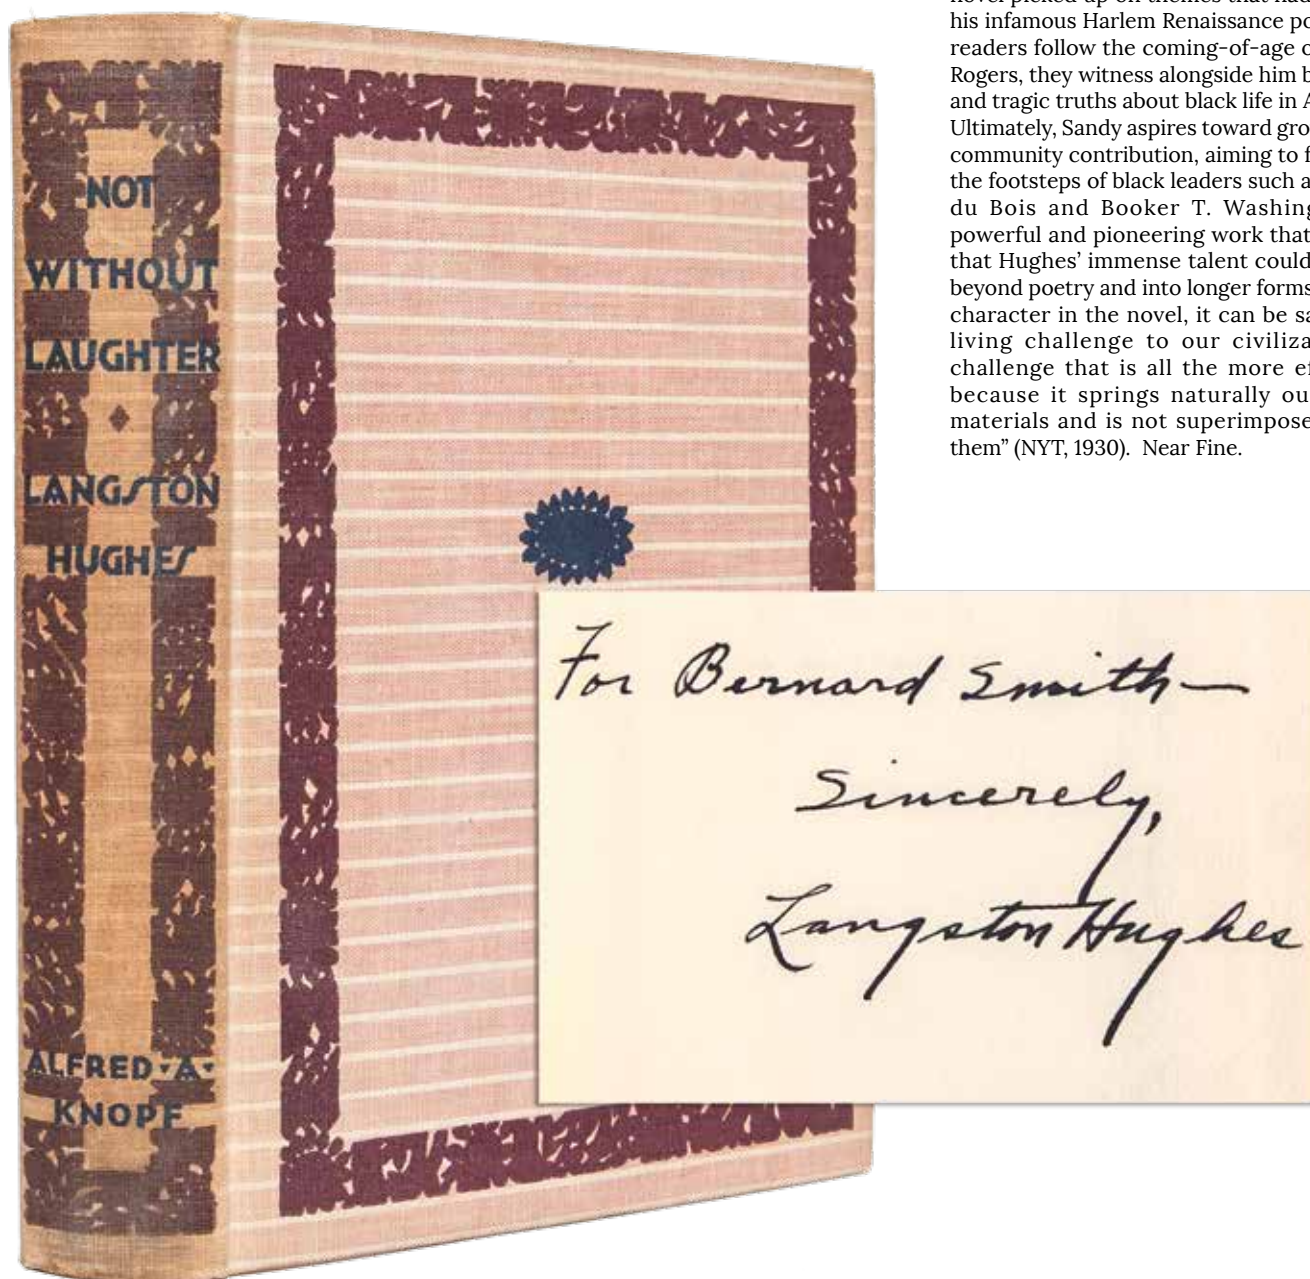 NOT
WITHOUT
LAUGHTER
LANGSTON
HUGHES
ALFRED · A ·
KNOPF
novel picked up on themes that had
his infamous Harlem Renaissance
readers follow the coming-of-age
Rogers, they witness alongside him
and tragic truths about black life in
Ultimately, Sandy aspires toward
community contribution, aiming to
the footsteps of black leaders such
du Bois and Booker T.
powerful and pioneering work that
that Hughes’ immense talent could
beyond poetry and into longer forms
character in the novel, it can be
living challenge to our
challenge that is all the more
because it springs naturally
materials and is not
them” (NYT, 1930). Near Fine.
For Bernard Smith—
Sincerely,
Langston Hughes